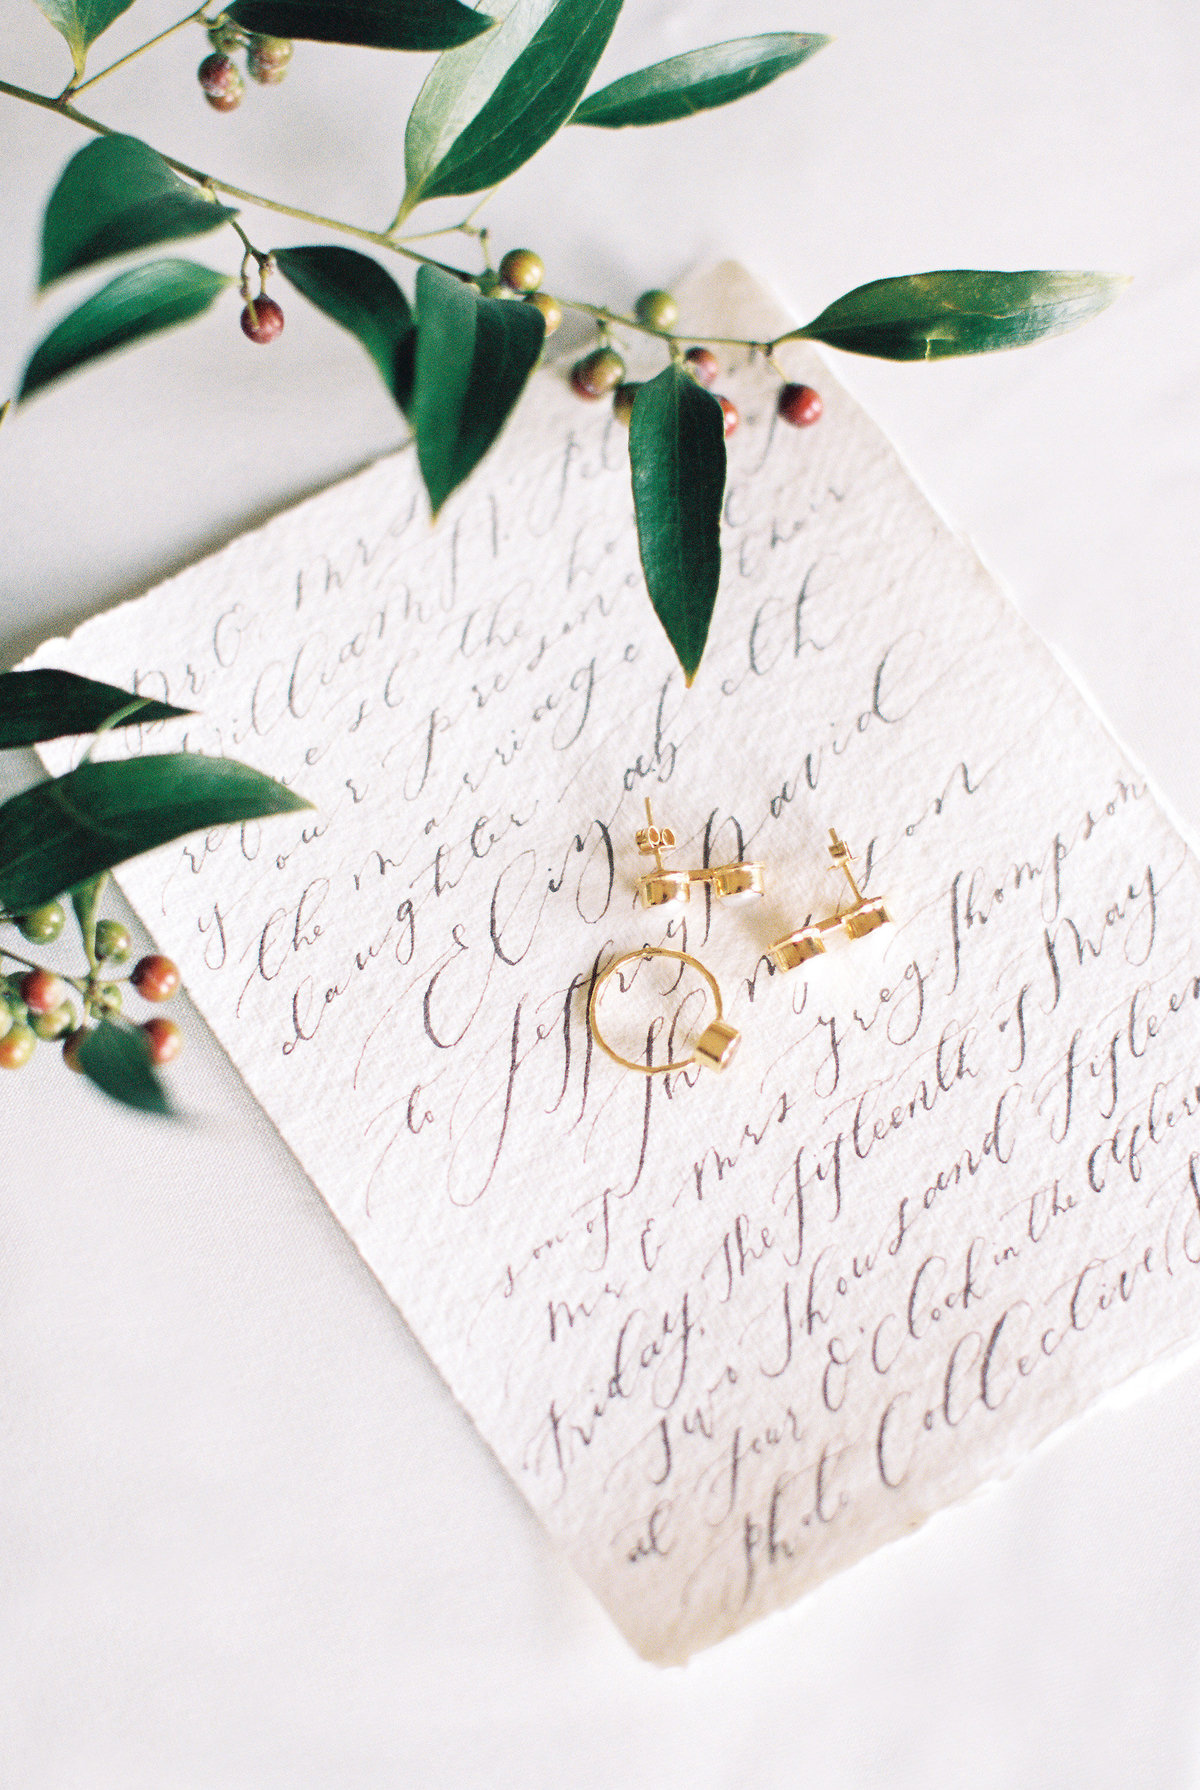 Dr. & Mrs
William A.
request the
your presence
the marriage their
daughter
Elizabeth
to Jeffrey David
Thompson
son of
Mr & Mrs Greg Thompson
Friday, The fifteenth of May
Two Thousand fifteen
at four O'Clock in the
Photo Collective